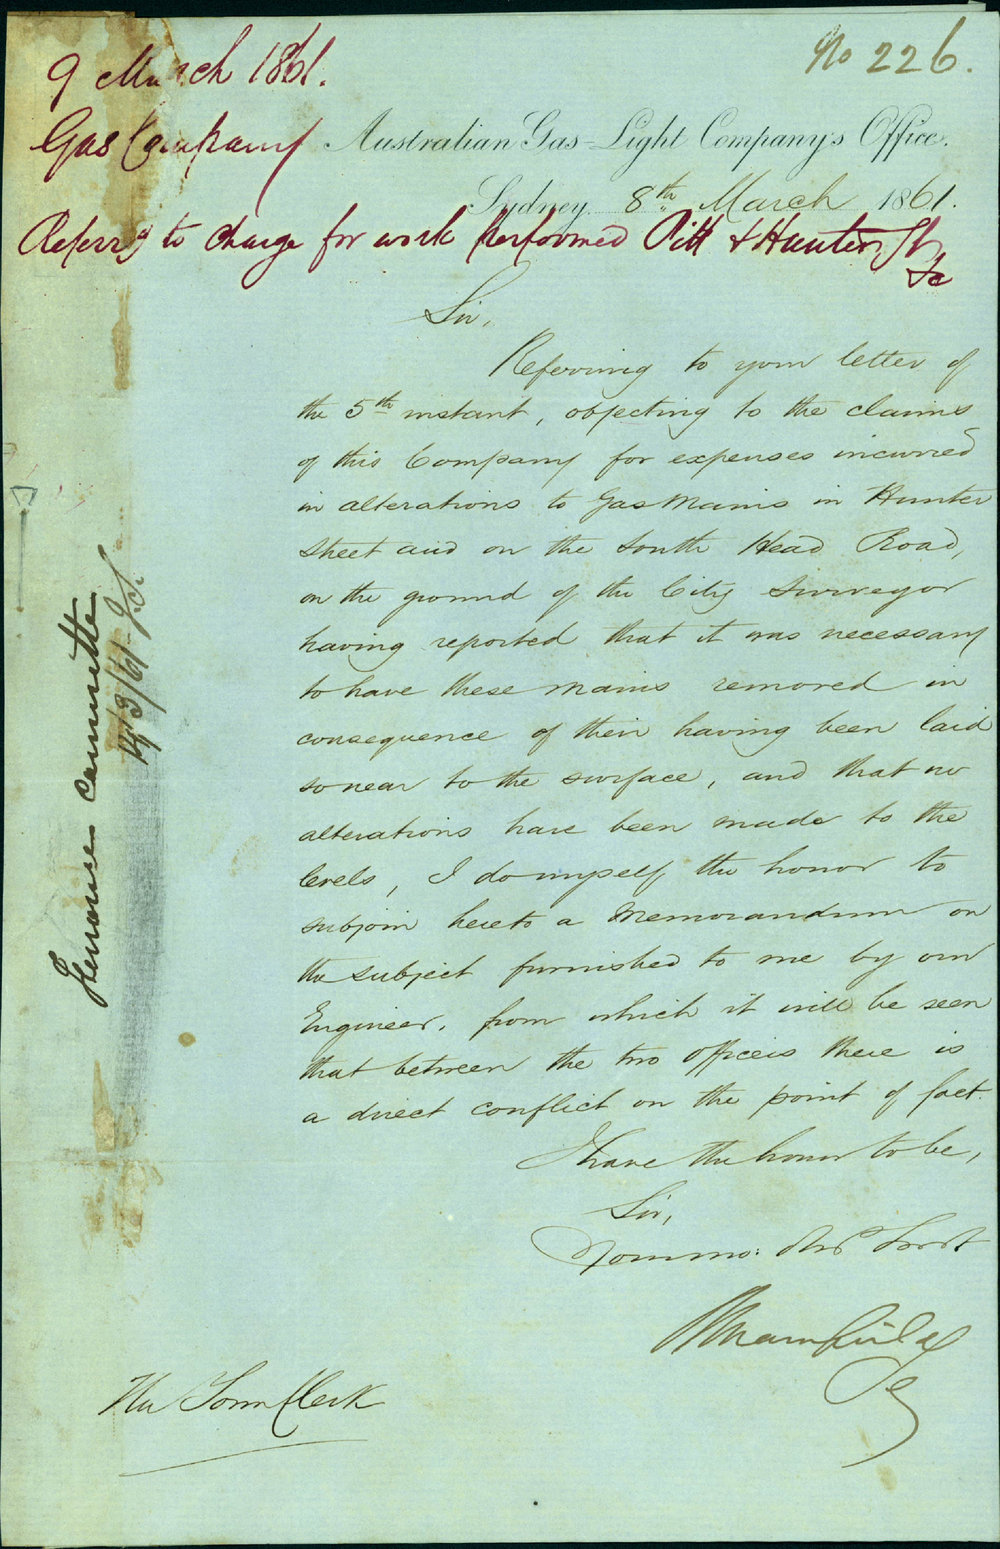 No 226.
9 March 1861.
Gas Company
Australian Gas-Light Company's Office.
Sydney 8th March 1861.
Referrg to charge for work performed Pitt & Hunter St
&c
Sir,
Referring to your letter of
the 5th instant, objecting to the claims
of this Company for expenses incurred
in alterations to Gas Mains in Hunter
Street and on the South Head Road,
on the ground of the City Surveyor
having reported that it was necessary
to have these mains removed in
consequence of their having been laid
so near to the surface, and that no
alterations have been made to the
levels, I do myself the honor to
subjoin hereto a Memorandum on
the subject furnished to me by our
Engineer, from which it will be seen
that between the two officers there is
a direct conflict on the point of fact.
I have the honor to be,
Sir,
Your mo: Obt Servt
R Mansfield
Secy
The Town Clerk
Finance Committee
14/3/61